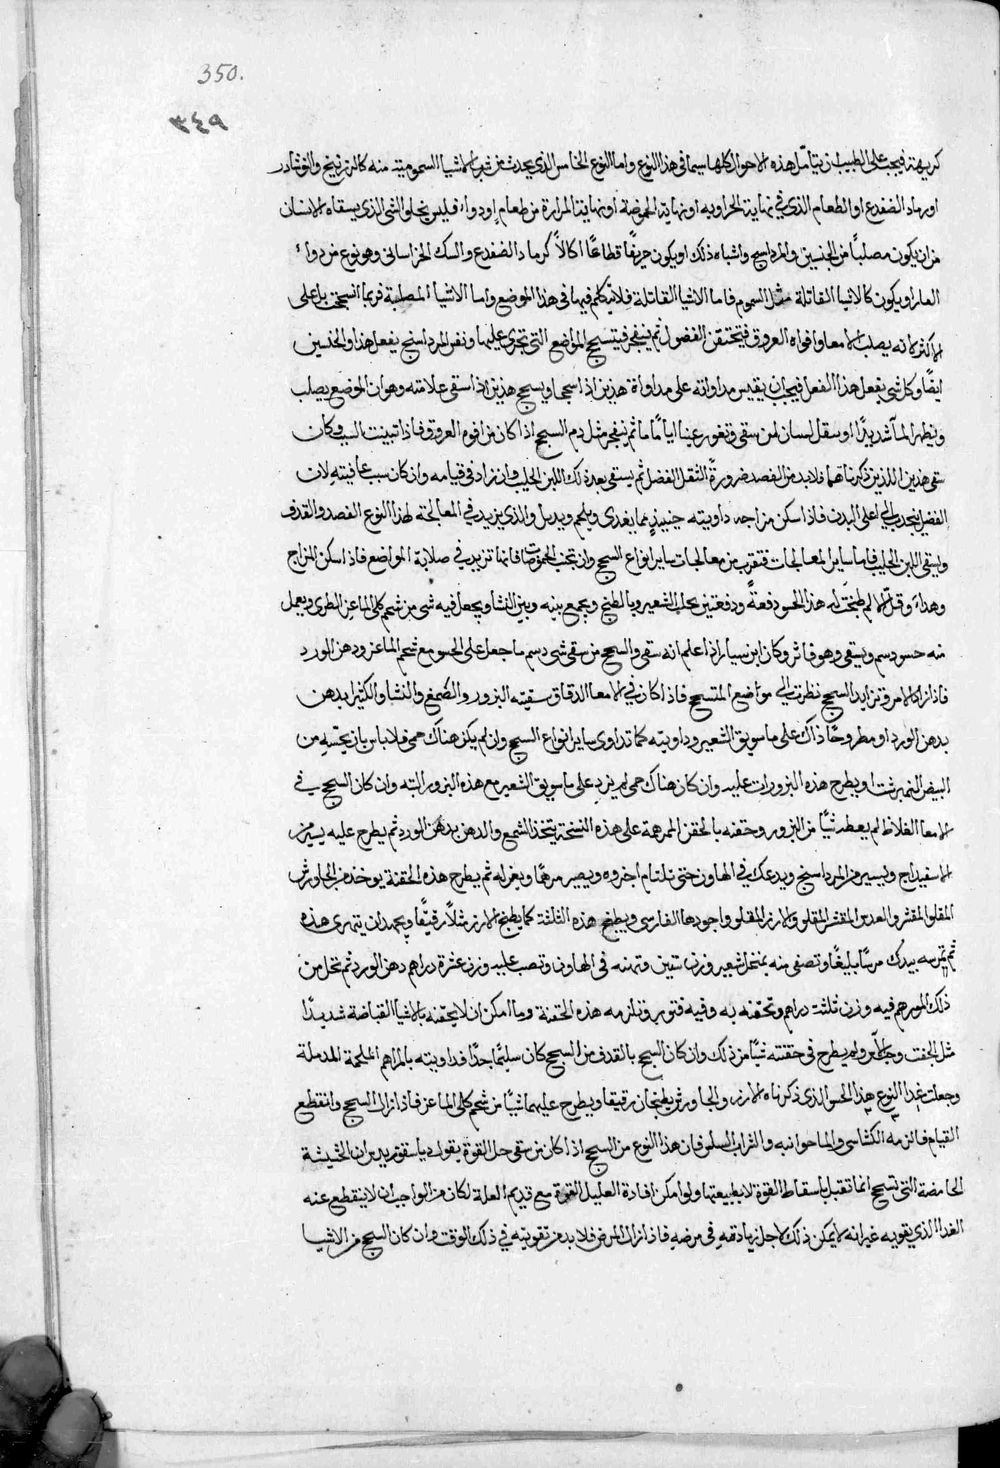 350.
٣٤٩
كريهة فيجب على الطبيب ان يتأمل هذه الاحوال كلها سيما في هذا النوع واما النوع الخامس الذي يحدث من شرب الاشيا السمومية منه كالزرنيخ والنوشادر
اورماد الضفدع او الطعام الذي في نهاية الحراوبه او نهاية الحموضة او نهاية المرارة من طعام او دواء فليس يخلو الشي الذي يسقاه الانسان
من ان يكون مصلبًا من الجنسين والمرداسنج واشباه ذلك او يكون حريفًا قطاعًا اكالاً كرماد الضفدع والسك الخراساني وهو نوع من دواء
الفار او يكون كالاشيا القاتلة مثل السموم فاما الاشيا القاتلة فلا نتكلم فيها في هذا الموضع واما الاشيا المصلبة فربما اسحجت بل على
الاكثر لانه يصلب الامعا وافواه العروق فيختنق الفضول ثم ينفجر فيتسحج المواضع التي تجرى عليها ونفس المرداسنج يفعل هذا والجنسين
ايضًا وكل شي يفعل هذا الفعل فيجب ان يقيس مداواته على مداواة هذين اذا سحجا ويسحج هذين اذا سقى علامته وهو ان الموضع يصلب
ويظهر الما شديدًا او سقل لسان لمن سقى وتغور عينا اياما ما ثم ينفجر مثل دم السحج اذا كان من افوه العروق فاذا تبينت السبب وكان
سقى هذين اللذين ذكرناهما فلا بد من الفصد ضرورة الثقل الفضل ثم يسقى بعد ذلك اللبن الحليب وان زاد في قيامه وان كان سبب عافيته لان
الفضل ينجذب الي اعلى البدن فاذا سكن مزاجه داويته حينيذٍ بما يغذى ويلحم ويدمل والذي يزيد في المعالجة لهذا النوع الفصد والقذف
ويسقى اللبن الحليب فاما ساير المعالجات فتقرب من معالجات ساير انواع السحج وان تجنب الحموضات فانها تزيد في صلابة المواضع فاذا سكن المزاج
وهدا وقل الالم طبخت له هذا الحسو دفعةً ودفعتين يحلب الشعير وبالطبخ ويجمع بينه وبين النشا ويجعل فيه شي من شحم كلى الماعز الطرى ويعمل
منه حسو دسم ويسقى وهو فاتر وكان ابن سيار اذا علم انه سقى والسحج من سقى شي دسم ما جعل على الحسو مع شحم الماعز ودهن الورد
فاذا زاد الامر وتزايد السحج نظرت الي مواضع المتسحج فاذا كان في الامعا الدقاق سقيته البزور والصمغ والنشا والكثيرا بدهن
بدهن الورد او مطروحًا ذاك على ما سويق الشعير وداويته كما تداوى ساير انواع السحج وان لم يكن هناك حمى فلا باس بان يحتسه من
البيض النمبرشت او يطرح هذه البزورات عليه وان كان هناك حمى لم يزد على ما سويق الشعير مع هذه البزور البته وان كان السحج في
الامعا الغلاظ لم يعطه شيًا من البزور وحقنه بالحقن الممرهمة على هذه النسخة يتخذ الشمع والدهن بدهن الورد ثم يطرح عليه يسير من
الاسفيداج ويسير من المرداسنج ويدعك في الهاون حتى تلتام اجزوه ويصير مرهمًا ويعزله ثم يطرح هذه الحقنة يوخذ من الجاورش
المقلو المقشر والعدس المقشر المقلو والارز المقلو واجودها الفارسى ويطبخ هذه الثلثة كما يطبخ الارز مثلاً رقيقًا ويجهد ان يتهرى هذه
ثم تمرسه بيدك مرسًا بليغًا وتصفى منه بمنخل شعير وزن ستين وثمنه في الهاون وتصب عليه وزن عشرة دراهم دهن الورد ثم تحل من
ذلك المورهم فيه وزن ثلثة دراهم وتحقنه به وفيه فتور وتلزمه هذه الحقنة وما امكن ان لا يحقنه بالاشيا القباضة شديدًا
مثل الجفت ولم يطرح في حقنته شيًا من ذلك وان كان السحج بالقذف من السحج كان سليمًا جدًا فداويته بالمراهم الملحمة المدملة
وجعلت غدا النوع هذا الحسو الذي ذكرناه الارز والجاورش يطبخان رقيقا ويطرح عليهما شيًا من شحم كلى الماعز فاذا زال السحج وانقطع
القيام فالزمه الكشاسى والماحوانبه والشراب السلو فان هذا النوع من السحج اذا كان من سقى حل القوة يقول دياسقوريدس ان الحشيشة
الحامضة التى تسحج انما تقبل باسقاط القوة لا بطبيعتها ولو امكن افادة العليل القوة مع قديم العلة لكان من الواجب ان لا ينقطع عنه
الغدا الذي يقويه غير انه لا يمكن ذلك لاجل زيادته في مرضه فاذا زال المرض فلا بد من تقويته في ذلك الوقت وان كان السحج من الاشيا